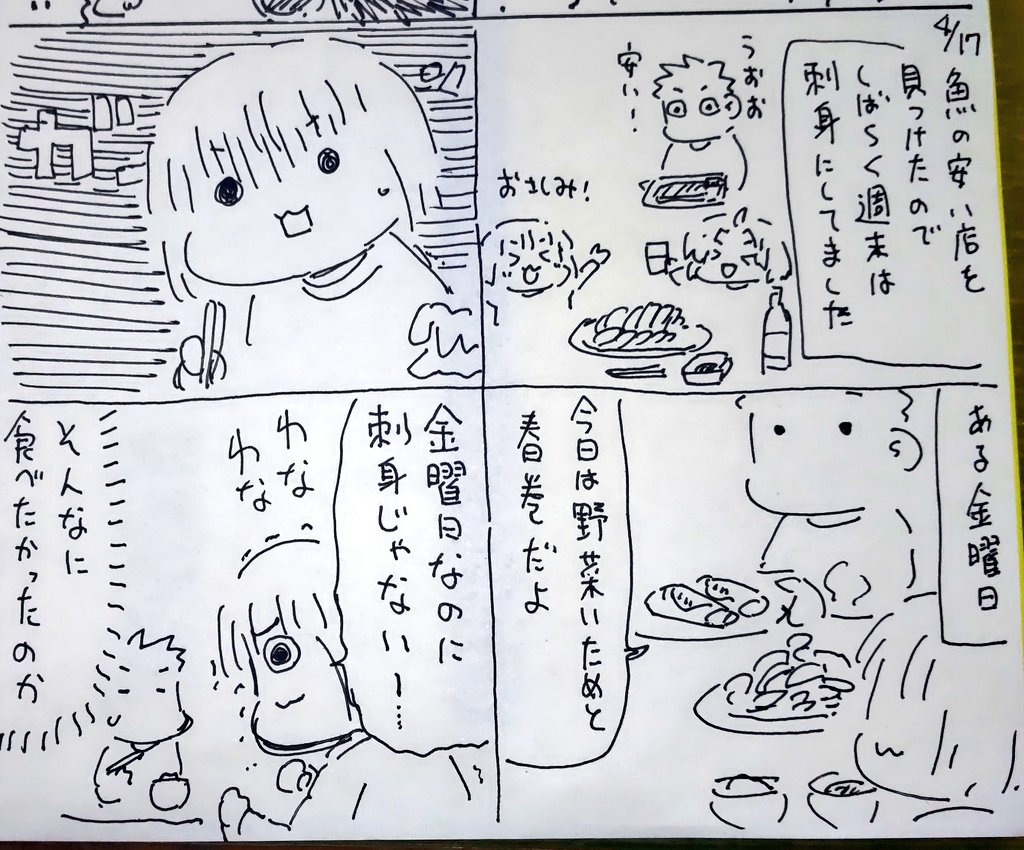 4/17
魚の安い店を
見つけたので
しばらく週末は
刺身にしてました
うおお
安い!
おさしみ!
ある金曜日
今日は野菜いためと
春巻だよ
ガ
ガ
金曜日なのに
刺身じゃない〜……
わな
わな
そんなに
食べたかったのか